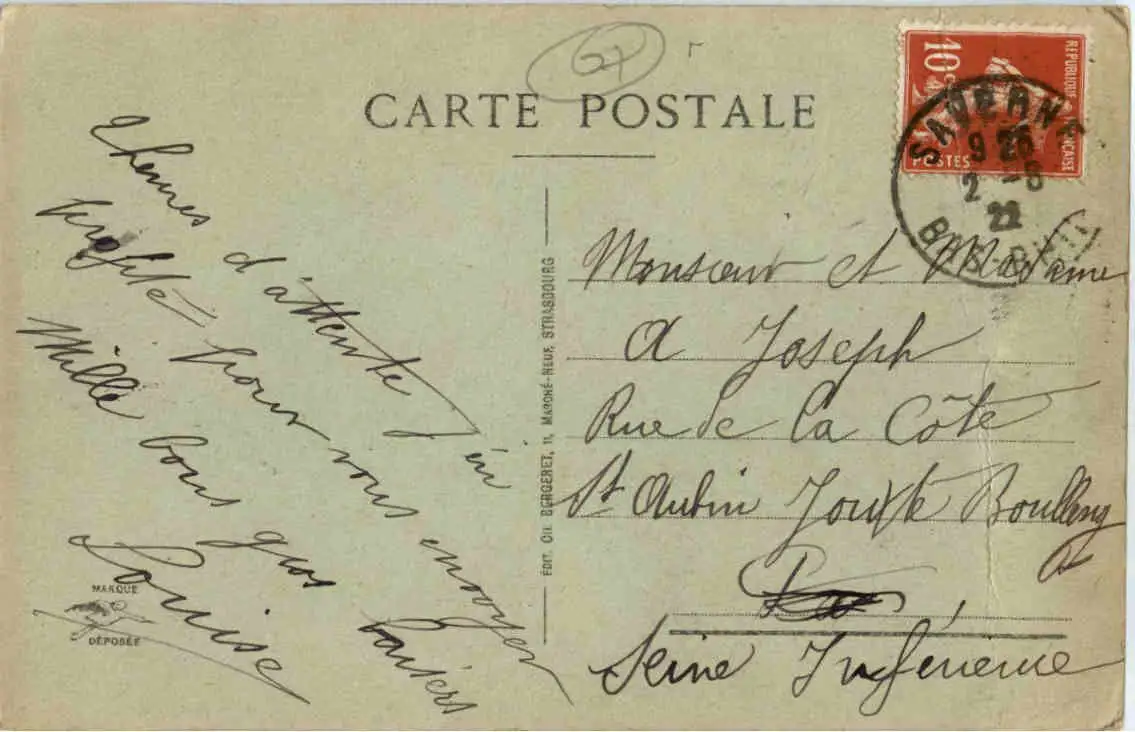 CARTE POSTALE
10c
RÉPUBLIQUE FRANÇAISE
POSTES
SAVERNE
9 25
2 -5
22
BAS-RHIN
2 heures d'attente j'en
profite pour vous envoyer
Mille bons gros baisers
Louise
MARQUE
DÉPOSÉE
ÉDIT. CH. BERGERET, 11, MARCHÉ-NEUF, STRASBOURG
Monsieur et Madame
A Joseph
Rue de la Côte
St Aubin Jouxte Boulleng
Seine Inférieure